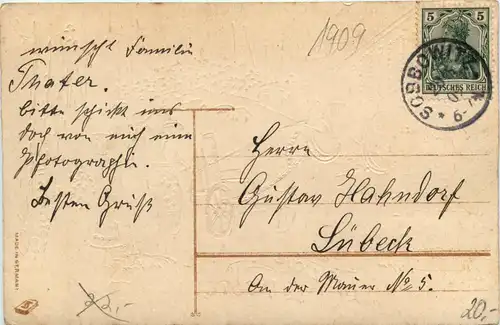 1909
wünscht Familie
Thater.
bitte schickt uns
doch von euch eine
Photographie.
Besten Gruß
5 5
DEUTSCHES REICH
SOSSOWITZ
* 6-7
Herrn
Gustav Hahndorf
Lübeck
An der Mauer No 5.
MADE IN GERMANY
20,-